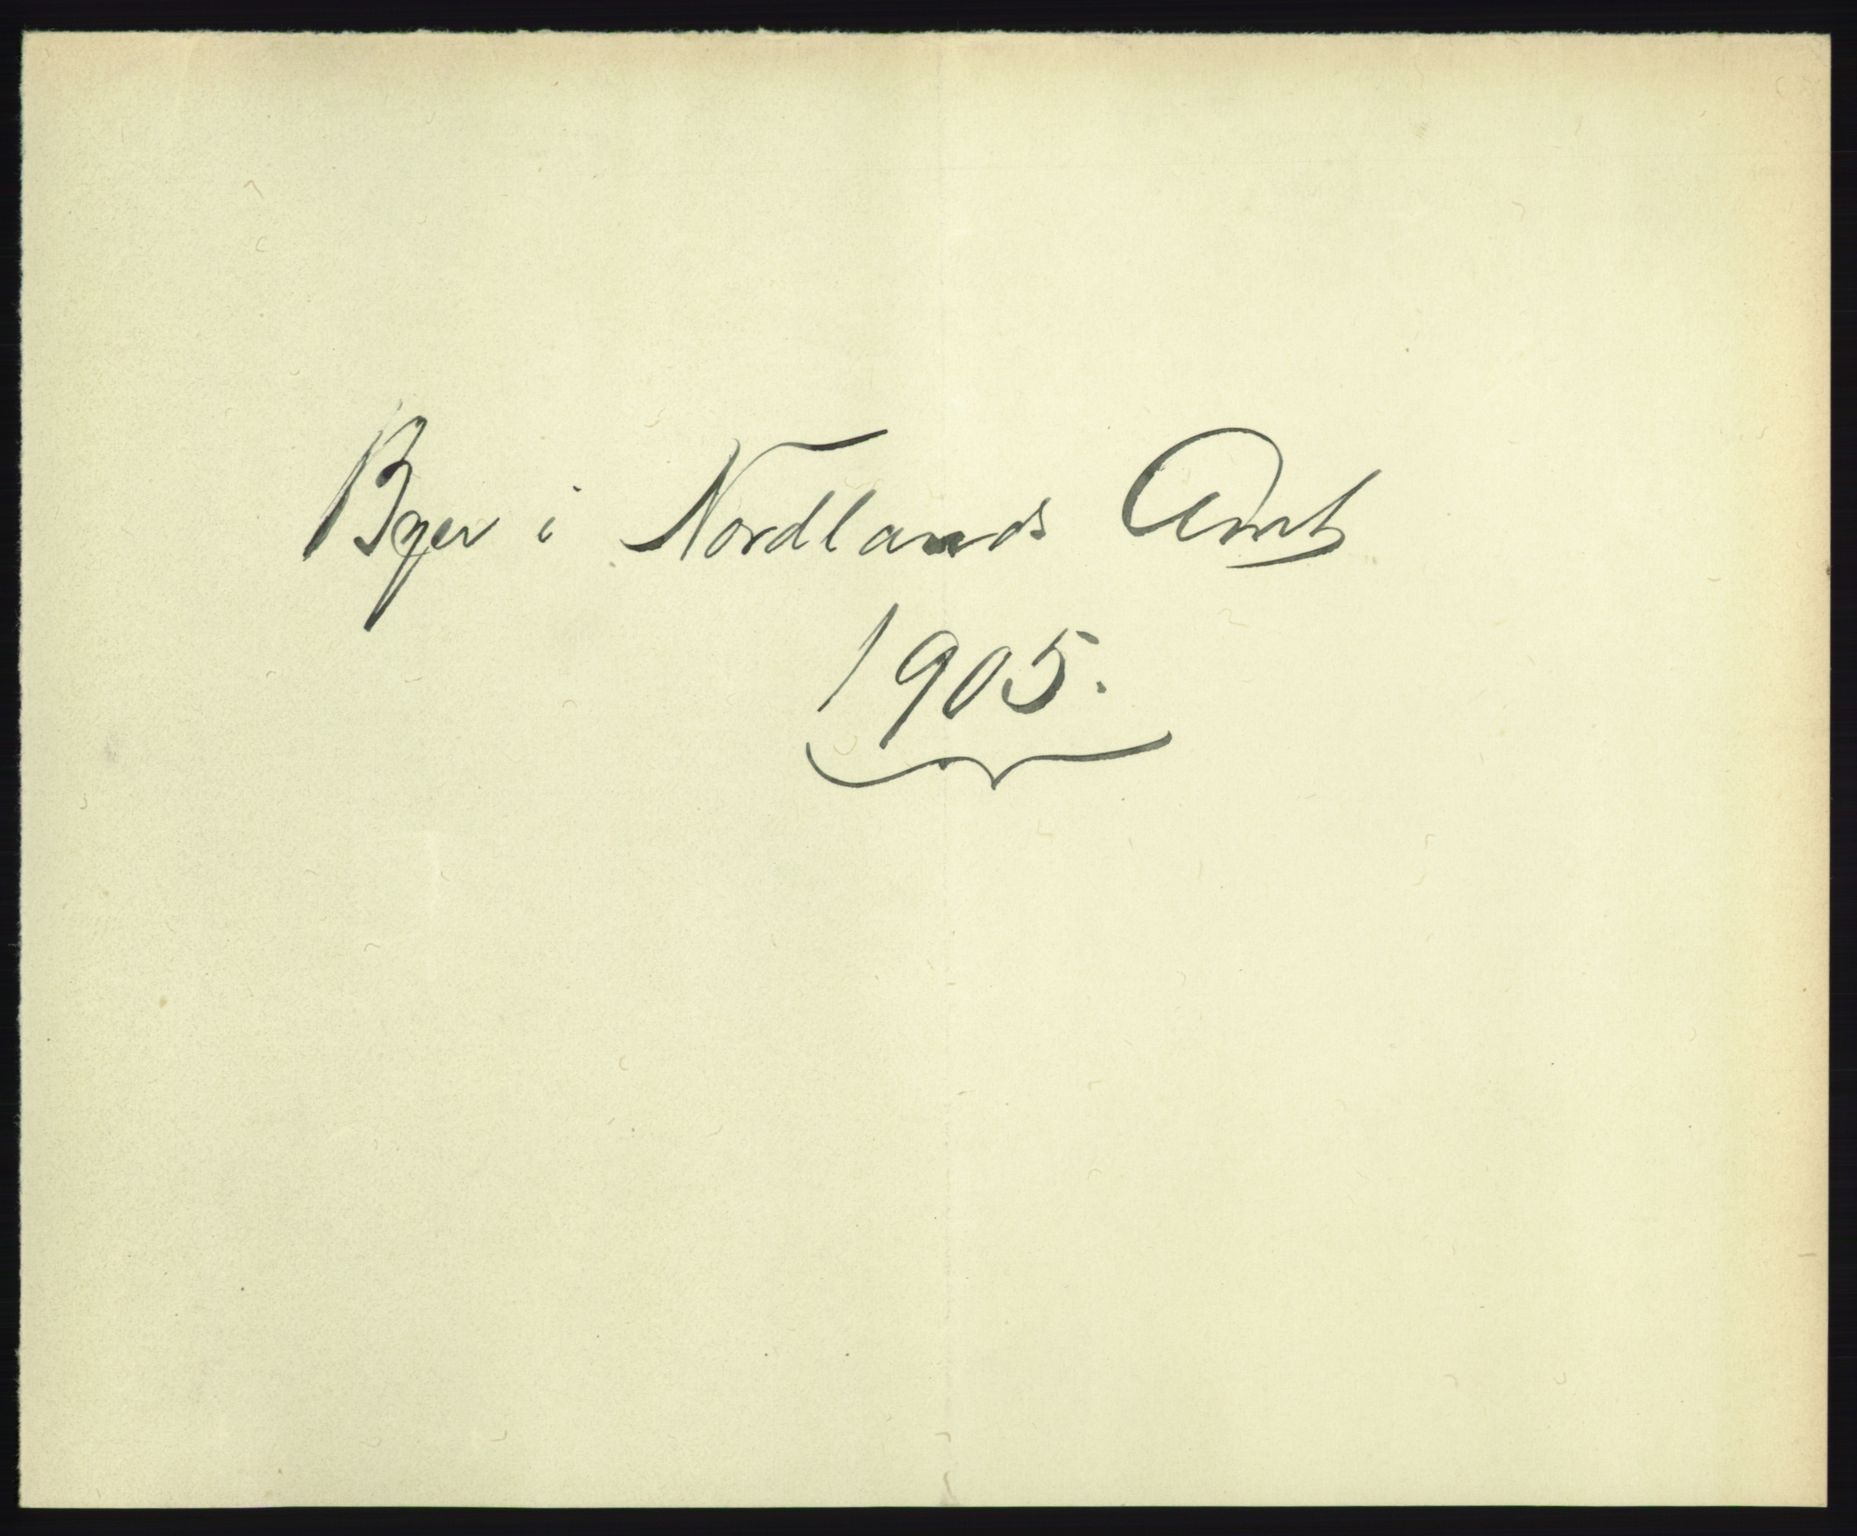 Byer i Nordlands Amt
1905.